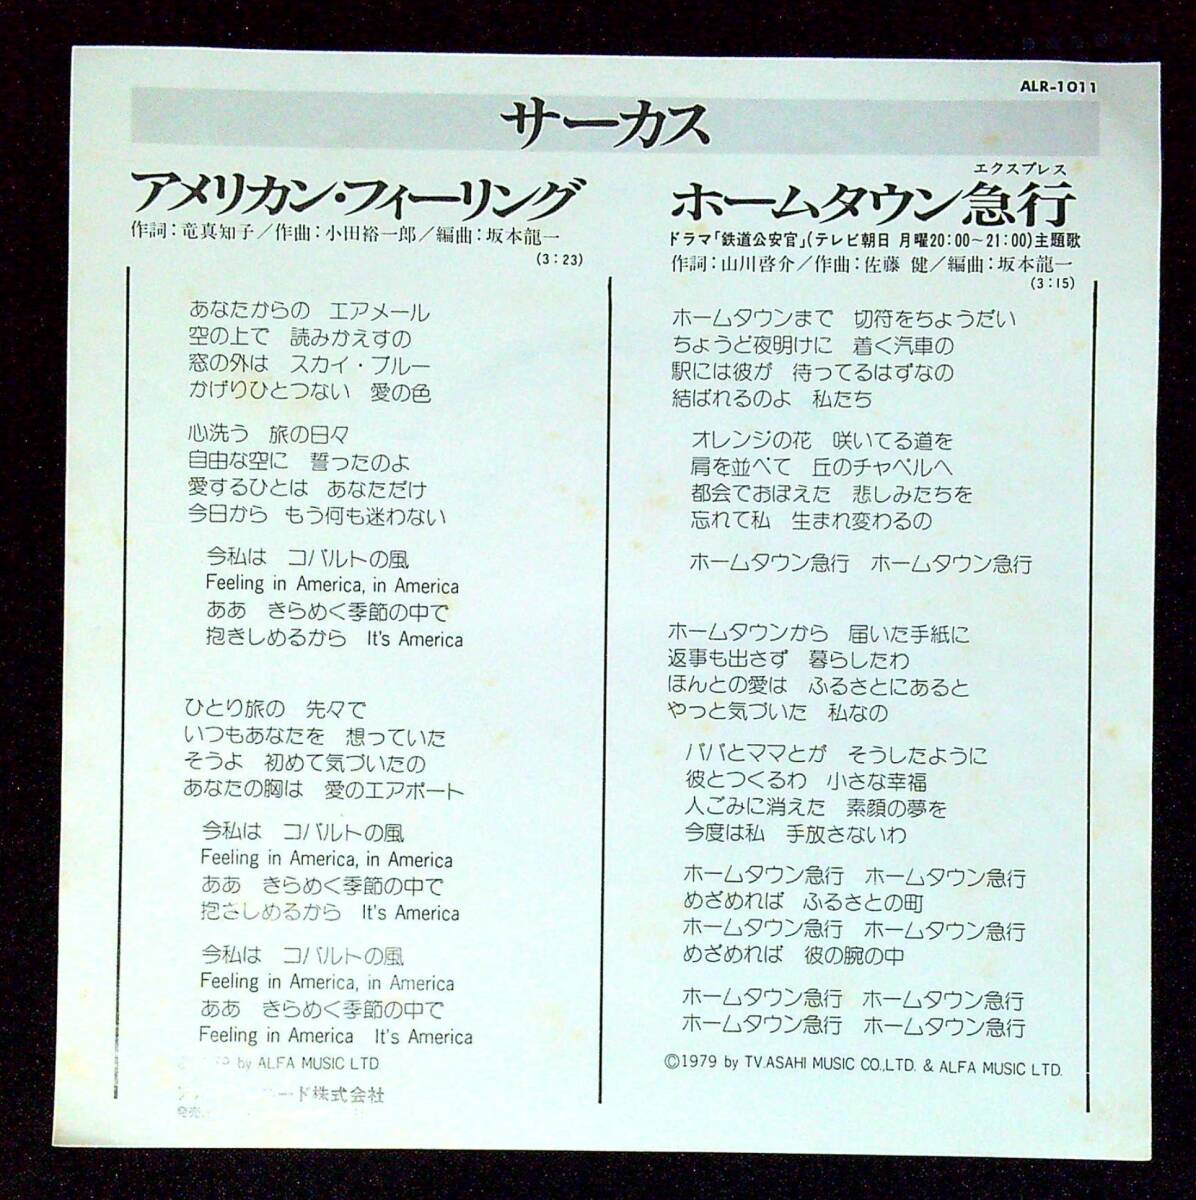 ALR-1011
サーカス
アメリカン・フィーリング
作詞：竜真知子／作曲：小田裕一郎／編曲：坂本龍一
(3：23)
あなたからの　エアメール
空の上で　読みかえすの
窓の外は　スカイ・ブルー
かげりひとつない　愛の色
心洗う　旅の日々
自由な空に　誓ったのよ
愛するひとは　あなただけ
今日から　もう何も迷わない
今私は　コバルトの風
Feeling in America, in America
ああ　きらめく季節の中で
抱きしめるから　It's America
ひとり旅の　先々で
いつもあなたを　想っていた
そうよ　初めて気づいたの
あなたの胸は　愛のエアポート
今私は　コバルトの風
Feeling in America, in America
ああ　きらめく季節の中で
抱きしめるから　It's America
今私は　コバルトの風
Feeling in America, in America
ああ　きらめく季節の中で
Feeling in America　It's America
by ALFA MUSIC LTD.
ード株式会社
発売
エクスプレス
ホームタウン急行
ドラマ「鉄道公安官」(テレビ朝日 月曜20：00〜21：00)主題歌
作詞：山川啓介／作曲：佐藤 健／編曲：坂本龍一
(3：15)
ホームタウンまで　切符をちょうだい
ちょうど夜明けに　着く汽車の
駅には彼が　待ってるはずなの
結ばれるのよ　私たち
オレンジの花　咲いてる道を
肩を並べて　丘のチャペルへ
都会でおぼえた　悲しみたちを
忘れて私　生まれ変わるの
ホームタウン急行　ホームタウン急行
ホームタウンから　届いた手紙に
返事も出さず　暮らしたわ
ほんとの愛は　ふるさとにあると
やっと気づいた　私なの
パパとママとが　そうしたように
彼とつくるわ　小さな幸福
人ごみに消えた　素顔の夢を
今度は私　手放さないわ
ホームタウン急行　ホームタウン急行
めざめれば　ふるさとの町
ホームタウン急行　ホームタウン急行
めざめれば　彼の腕の中
ホームタウン急行　ホームタウン急行
ホームタウン急行　ホームタウン急行
©1979 by TV.ASAHI MUSIC CO.,LTD. & ALFA MUSIC LTD.